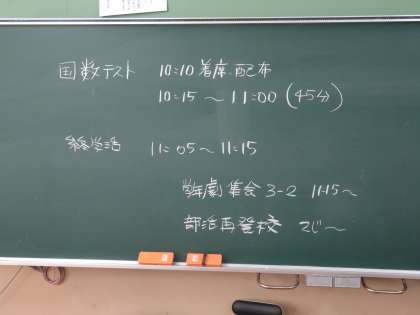 国数テスト 10:10 着席・配布
10:15 〜 11:00 (45分)
11:05〜11:15
学年劇集会 3-2 11:15〜
部活再登校 2じ〜